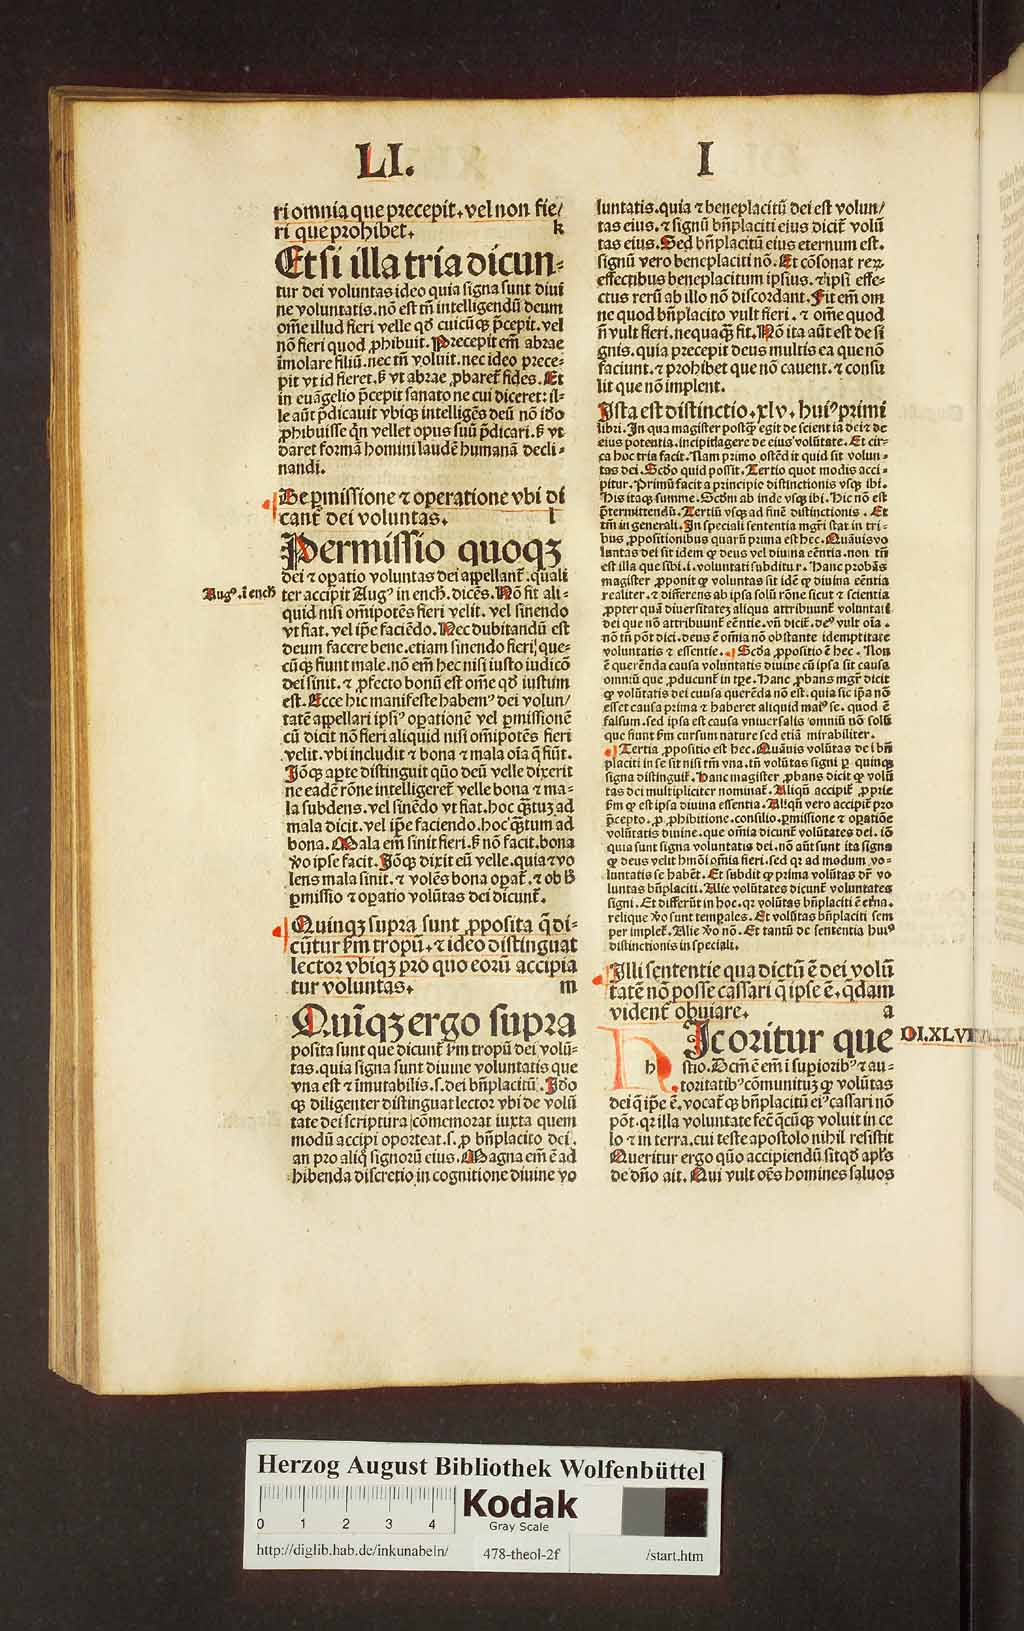 LI. I
ri omnia que precepit. vel non fie/
ri que prohibet. k
Et si illa tria dicun-
tur dei voluntas ideo quia signa sunt diui
ne voluntatis. nō est tm̄ intelligendū deum
om̄e illud fieri velle qđ cuicūqꝫ p̄cepit. vel
nō fieri quod ꝓhibuit. Precepit em̄ abrae
īmolare filiū. nec tm̄ voluit. nec ideo prece-
pit vt id fieret. ß vt abrae ꝓbaret᷑ fides. Et
in euāgelio p̄cepit sanato ne cui diceret: il-
le aūt p̄dicauit vbiqꝫ intelligēs deū nō iđo
ꝓhibuisse qn̄ vellet opus suū p̄dicari. ß vt
daret formā homini laudē humanā decli-
nandi.
De ꝑmissione ⁊ operatione vbi di
cant᷑ dei voluntas. l
Permissio quoqꝫ
dei ⁊ oꝑatio voluntas dei appellant᷑. quali
Augꝰ. ī ench̄
ter accipit Augꝰ in ench̄. dicēs. Nō fit ali-
quid nisi om̄ipotēs fieri velit. vel sinendo
vt fiat. vel ip̄e faciēdo. Nec dubitandū est
deum facere bene. etiam sinendo fieri: que-
cūqꝫ fiunt male. nō em̄ hec nisi iusto iudicō
dei sinit. ⁊ ꝓfecto bonū est om̄e qđ iustum
est. Ecce hic manifeste habemꝰ dei volun/
tatē appellari ipsiꝰ oꝑationē vel ꝑmissionē
cū dicit nō fieri aliquid nisi om̄ipotēs fieri
velit. vbi includit ⁊ bona ⁊ mala oīa q̄ fiūt.
Iđoqꝫ aꝑte distinguit quō deū velle dixerit
ne eadē rōne intelligeret᷑ velle bona ⁊ ma-
la subdens. vel sinēdo vt fiat. hoc q̄tuꝫ ad
mala dicit. vel ip̄e faciendo. hoc q̄tum ad
bona. Mala em̄ sinit fieri. ß nō facit. bona
ꝟo ipse facit. Iđoqꝫ dixit eū velle. quia ⁊ vo
lens mala sinit. ⁊ volēs bona oꝑat᷑. ⁊ ob ħ
ꝑmissio ⁊ oꝑatio volūtas dei dicunt᷑.
Quinqꝫ supra sunt ꝓposita q̄ di-
cūtur ẜm tropū. ⁊ ideo distinguat
lector vbiqꝫ pro quo eorū accipia
tur voluntas. m
Quīqꝫ ergo supra
posita sunt que dicunt᷑ ẜm tropū dei volū-
tas. quia signa sunt diuine voluntatis que
vna est ⁊ īmutabilis. s. dei bn̄placitū. Iđo
qꝫ diligenter distinguat lector vbi de volū
tate dei scriptura cōmemorat iuxta quem
modū accipi oporteat. s. ꝓ bn̄placito dei.
an pro aliq̊ signorū eius. Magna em̄ ē ad
hibenda discretio in cognitione diuine vo
luntatis. quia ⁊ beneplacitū dei est volun/
tas eius. ⁊ signū bn̄placiti eius dicit᷑ volū
tas eius. Sed bn̄placitū eius eternum est.
signū vero beneplaciti nō. Et cōsonat reꝝ
effectibus beneplacitum ipsius. ⁊ ipsi effe-
ctus rerū ab illo nō discordant. Fit em̄ om
ne quod bn̄placito vult fieri. ⁊ om̄e quod
n̄ vult fieri. nequaq̄ fit. Nō ita aūt est de si
gnis. quia precepit deus multis ea que nō
faciunt. ⁊ prohibet que nō cauent. ⁊ consu
lit que nō implent.
Ista est distinctio. xlv. huiꝰ primi
libri. In qua magister postq̄ egit de scientia dei ⁊ de
eius potentia. incipit agere de eiusꝰ volūtate. Et cir-
ca hoc tria facit. Nam primo ostēdit quid sit volun-
tas dei. Scđo quid possit. Tertio quot modis acci-
pitur. Primū facit a principio distinctionis vsqꝫ ibi.
His itaqꝫ summe. Scđm ab inde vsqꝫ ibi. Hic nō est
p̄termittendū. Tertiū vsqꝫ ad finē distinctionis. Et
tm̄ in generali. In speciali sententia mgr̄i stat in tri-
bus ꝓpositionibus quarū prima est hec. Quāuis vo
luntas dei sit idem qꝙ deus vel diuina eēntia. non tn̄
est illa que sibi. i. voluntati subditur. Hanc probās
magister ꝓponit ꝙ voluntas sit idē ꝙ diuina eēntia
realiter. ⁊ differens ab ipsa solū rōne sicut ⁊ scientia
ꝓpter quā diuersitatē aliqua attribuunt᷑ voluntati
dei que nō attribuunt᷑ eēntie. vn̄ dicit᷑. deꝰ vult oīa.
nō tn̄ pōt dici. deus ē omīa nō obstante idemptitate
voluntatis ⁊ essentie. Scđa ꝓpositio ē hec. Non
ē querēnda causa voluntatis diuine cū ipsa sit causa
omniū que ꝓducunt᷑ in tꝑe. Hanc ꝓbans mgr̄ dicit
ꝙ volūtatis dei causa querēda nō est. quia sic ip̄a nō
esset causa prima ⁊ haberet aliquid maiꝰ se. quod ē
falsum. sed ipsa est causa vniuersalis omniū nō solū
que fiunt ẜm cursum nature sed etiā mirabiliter.
Tertia ꝓpositio est hec. Quāuis volūtas dei bn̄
placiti in se sit nisi tm̄ vna. tn̄ volūtas signi ꝑ quinqꝫ
signa distinguit᷑. Hanc magister ꝓbans dicit ꝙ volū
tas dei multipliciter nominat᷑. Aliqn̄ accipit᷑ ꝓprie
ẜm ꝙ est ipsa diuina essentia. Aliqn̄ vero accipit᷑ pro
p̄cepto. ꝓ ꝓhibitione. consilio. ꝑmissione ⁊ oꝑatiōe
volūtatis diuine. que om̄ia dicunt᷑ volūtates dei. iō
quia sunt signa voluntatis dei. nō aūt sunt ita signa
ꝙ deus velit hm̄oi om̄ia fieri. sed qꝛ ad modum vo-
luntatis se habēt. Et subdit ꝙ prima volūtas dr̄ vo
luntas bn̄placiti. Alie volūtates dicunt᷑ voluntates
signi. Et differūt in hoc. qꝛ volūtas bn̄placiti ē et̄na.
relique ꝟo sunt temꝑales. Et volūtas bn̄placiti sem
per implet᷑. Alie ꝟo nō. Et tantū de sententia huiꝰ
distinctionis in speciali.
Illi sententie qua dictū ē dei volū
tatē nō posse cassari q̄ ipse ē. q̄dam
vident᷑ obuiare. a
HIc oritur que DI.XLVI
h stio. Dcm̄ ē em̄ ī suꝑioribꝰ ⁊ au-
toritatibꝰ cōmunituꝫ ꝙ volūtas
dei q̄ ip̄e ē. vocat᷑ qꝫ bn̄placitū eiꝰ cassari nō
pōt. qꝛ illa voluntate fec̄ q̄cūqꝫ voluit in ce
lo ⁊ in terra. cui teste apostolo nihil resistit
Queritur ergo quō accipiendū sit qđ apl̄s
de dn̄o ait. Qui vult oēs homines saluos
Herzog August Bibliothek Wolfenbüttel
0 1 2 3 4
Kodak
Gray Scale
http://diglib.hab.de/inkunabeln/ 478-theol-2f /start.htm